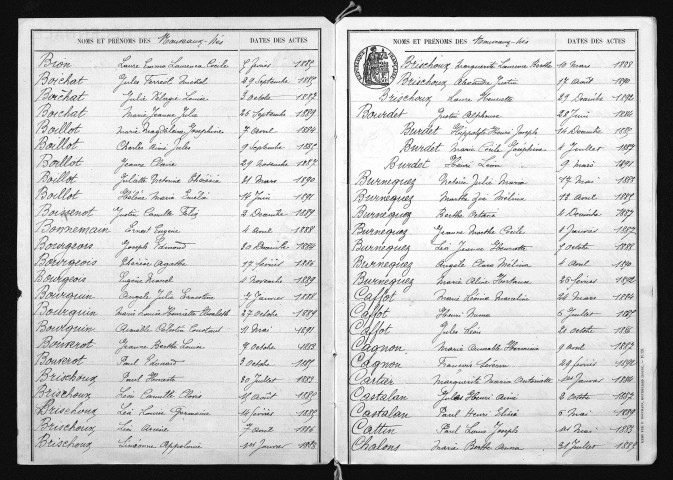 NOMS ET PRÉNOMS DES Nouveaux-nés DATES DES ACTES
Bron Laure Emma Laurence Cécile
Boichat Jules 29 Septembre 1885
Boichat Julie Louise 2 Octobre 1887
Boichat Marie Jeanne Julie 25 Septembre 1889
Boillot Marie Joséphine 7 Avril 1884
Boillot Charles Aimé Jules 9 Septembre 1885
Boillot Jeanne Marie 29 Novembre 1887
Boillot Juliette 21 Mars 1890
Boillot Hélène Maria 14 Juin 1891
Boissenot Justin Camille Félix 2 Décembre 1889
Bonnemain Ernest Eugène 4 Avril 1888
Bourgeois Joseph Edmond 20 Décembre 1884
Bourgeois Thérèse Agathe 17 février 1886
Bourgeois Eugène Marcel 4 Novembre 1889
Bourquin Angèle Julia Ernestine 7 Janvier 1888
Bourquin Marie Louise Henriette Elisabeth 27 Octobre 1889
Bourquin Armelle Célestin Constant 11 Mai 1891
Bouverot Jeanne Berthe Louise 7 Octobre 1883
Bouverot Paul Edouard 3 Octobre
Brischoux Paul Honoré 30 Juillet 1883
Brischoux Léon Camille Clovis 11 Août 1885
Brischoux Léa Louise Germaine 14 février 1885
Brischoux Léa 7 Août 1886
Brischoux Suzanne Appolonie 1er Janvier 1888
NOMS ET PRÉNOMS DES Nouveaux-nés DATES DES ACTES
Brischoux Marguerite Laurence Berthe Mars 1888
Brischoux Justin 17 Août 1890
Brischoux Laure Henriette 29 Décembre 1892
Bourdet Justin Alphonse 28 Juin 1884
Burdet Hippolyte Henri Joseph 16 Décembre 1885
Burdet Marie Cécile Joséphine 4 Juillet 1889
Burdet Henri Léon 9 Mai 1891
Burneguez Julia Maria 17 Mai 1883
Burneguez Marthe Mélina 12 Avril 1885
Burneguez Berthe 4 Décembre 1887
Burneguez Jeanne Marthe Cécile 4 Janvier 1887
Burneguez Léa Jeanne Henriette 7 Octobre 1888
Burneguez Angèle Clara Mélina 4 Avril 1890
Burneguez Marie Aline Hortense 25 février 1892
Caffot Marie Léonie Marceline 24 Mars 1884
Caffot Henri 5 Juillet 1885
Caffot Jules Léon 21 Octobre 1886
Cagnon Marie Armelle Hermine 9 Avril 1887
Cagnon François Séverin 29 février 1892
Cartier Marguerite Marie Antoinette 1er Janvier
Castalan Jules Henri Aimé 2 Octobre 1887
Castalan Paul Henri 5 Mai 1889
Cattin Paul Louis Joseph Mai 1883
Chalons Marie Berthe Anna 31 Juillet 1885